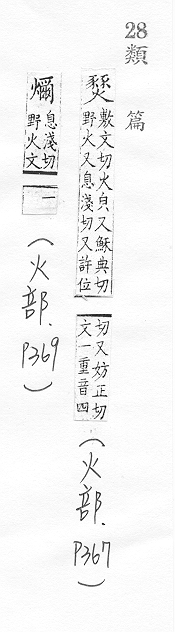 28
類篇
燹 敷文切火皃又穌典切
野火又息淺切又許位
切又妨正切
文一重音四
(火部. P367)
爓 息淺切
野火文一
(火部. P369)